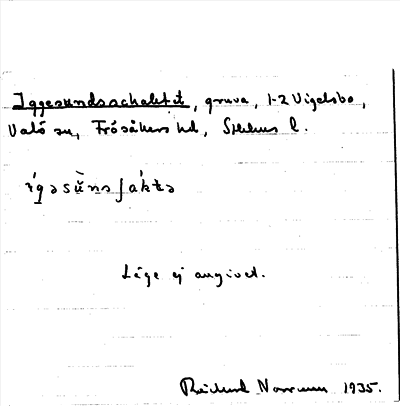 Iggesundsschaktet, gruva, 1-2 Vigelsbo,
Valö sn, Frösåkers hd, Sthlms l.
ı́gəsùnsʃáktə
Läge ej angivet.
Rickard Norrman 1935.